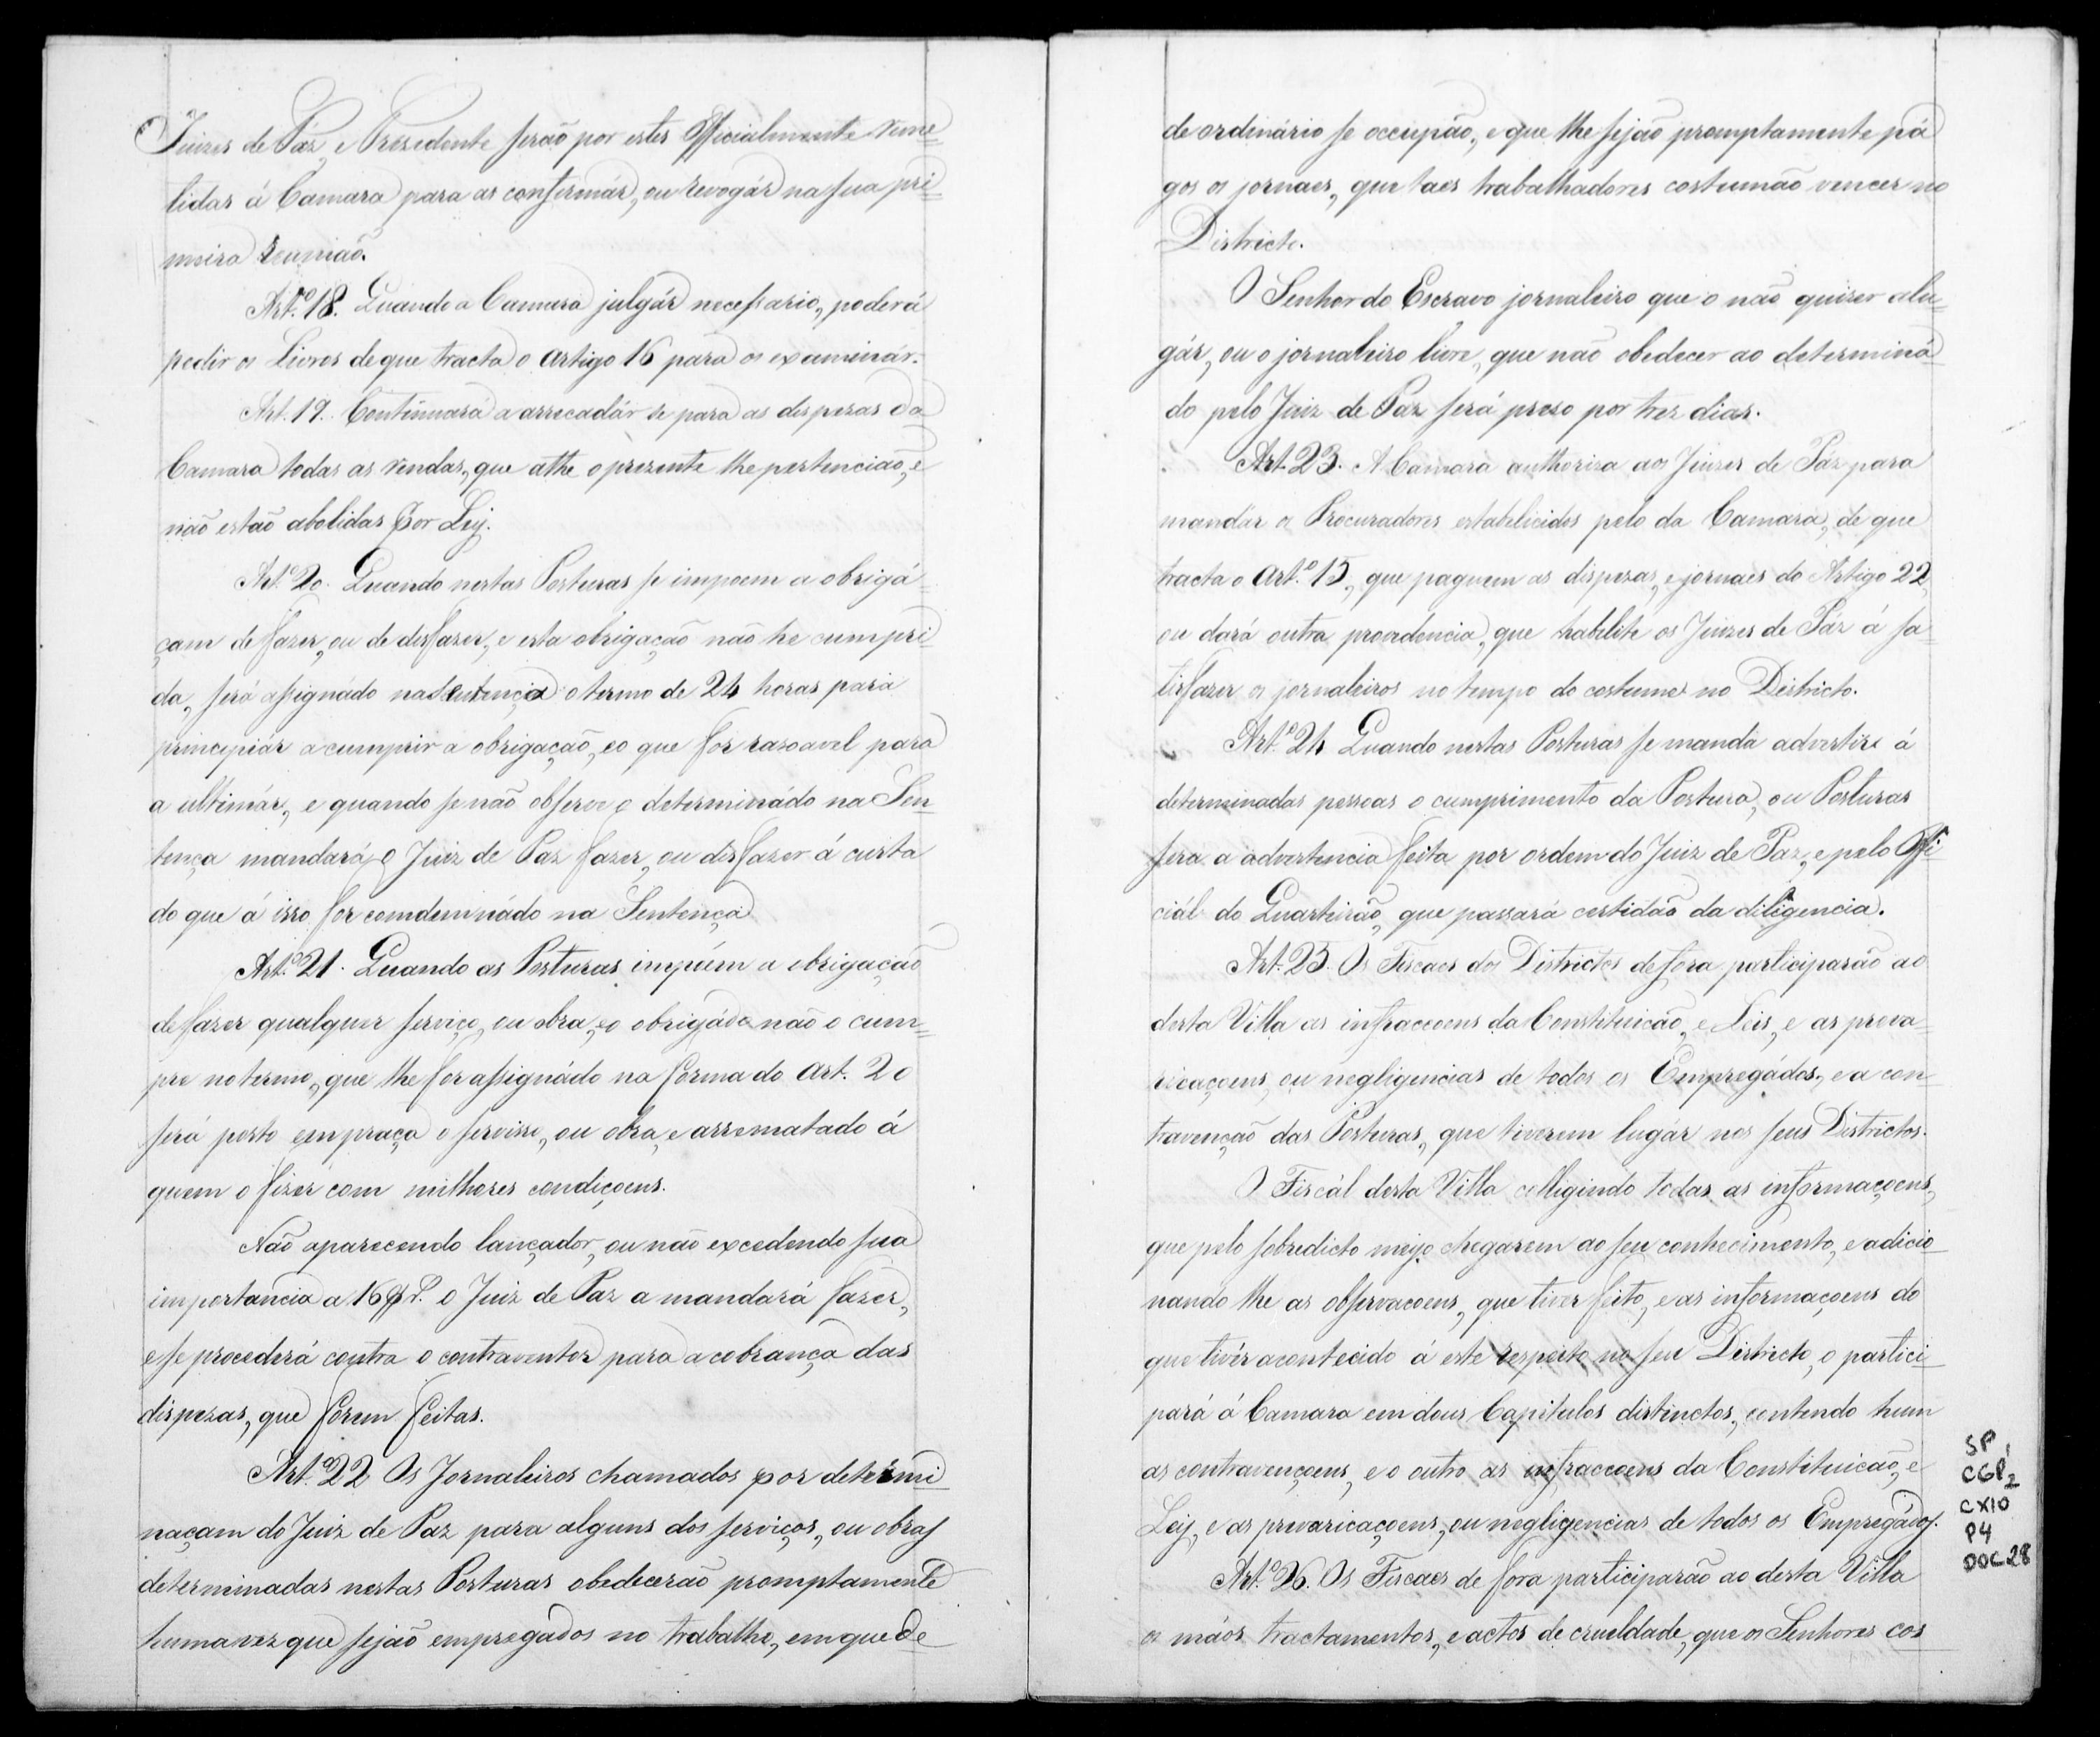 Juizes de Paz, e Prezidente serão por estes Officialmente reme=
tidas á Camara para as confirmár, ou revogár na sua pri=
meira reunião.
Art.º 18. Quando a Camara julgár necessario, poderá
pedir os Livros de que tracta o artigo 16 para os examinár.
Art. 19. Continuará a arrecadár se para as despezas da
Camara todas as rendas, que athe o prezente lhe pertencião, e
não estão abolidas por Ley.
Art.º 20. Quando nestas Posturas se impoem a obrigá=
çam de fazer, ou de desfazer, e esta obrigação não he cumpri=
da, será assignádo na Sentença o termo de 24 horas para
principiár a cumprir a obrigação, e o que for rasoavel para
a ultimár, e quando se não observe o determinádo na Sen=
tença mandará o Juiz de Paz fazer, ou desfazer á custa
do que á isso for comdemnádo na Sentença
Art.º 21. Quando as Posturas impúem a obrigação
de fazer qualquer serviço, ou obra, e o obrigádo não o cum=
pre no termo, que lhe for assignádo na forma do art. 20
será posto em praça o servisso, ou obra, e arrematado á
quem o fizér com milhores condiçoens.
Não aparecendo lançador, ou não excedendo sua
importancia a 16$r. o Juiz de Paz a mandará fazer,
e se procederá contra o contraventor para a cobrança das
dispezas, que forem feitas.
Art.º 22 Os Jornaleiros chamados por determi
naçam do Juiz de Paz para alguns dos serviços, ou obras
determinadas nestas Posturas obedecerão promptamente
huma vez que sejão empregados no trabalho, em que de
de ordinário se occupão, e que lhe sejão promptamente pá
gos os jornaes, que taes trabalhadores costumão vencer no
Districto.
O Senhor do Escravo jornaleiro que o não quizer alu=
gár, ou o jornaleiro livre, que não obedecer ao determiná=
do pelo Juiz de Paz será preso por trez dias.
Art. 23. A Camara authoriza aos Juizes de Páz para
mandár os Procuradores estabelicidos pelo da Camara, de que
tracta o art.º 15, que paguem as dispezas, e jornaes do Artigo 22,
ou dará outra providencia, que habilite os Juizes de Páz á sa=
tisfazer os jornaleiros no tempo do costume no Districto.
Art.º 24 Quando nestas Posturas se manda advertir á
determinadas pessoas o cumprimento da Postura, ou Posturas
será a advertencia feita por ordem do Juiz de Paz, e pelo Offi=
ciál do Quarteirão, que passará certidão da diligencia.
Art. 25. Os Fiscaes dos Districtos de fóra participarão ao
desta Villa as infraccoens da Constituicão, e Leis, e as preva=
ricaçoens, ou negligencias de todos os Empregádos, e a con=
travenção das Posturas, que tiverem lugár nos seus Districtos.
O Fiscál desta Villa colligindo todas as informaçoens,
que pelo sobredicto meyo chegarem ao seu conhecimento, e adicio=
nando lhe as observacoens, que tiver feito, e as informaçoens do
que tivér acontecido á este respeito no seu Districto, o partici=
pará á Camara em dous Capitulos distinctos, contendo hum
as contravençoens, e o outro as infraccoens da Constituicão, e
Ley, e as prevaricaçoens, ou negligencias de todos os Empregádos.
Art.º 26. Os Fiscaes de fora participarão ao desta Villa
os máos tractamentos, e actos de crueldade, que os Senhores cos
SP1
CGP2
CX10
P4
DOC28